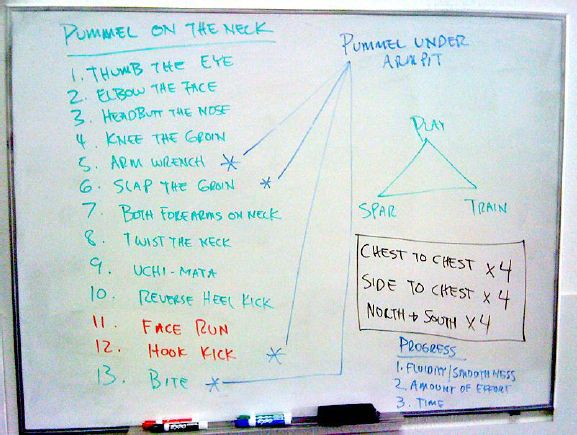 PUMMEL ON THE NECK
1. THUMB THE EYE
2. ELBOW THE FACE
3. HEADBUTT THE NOSE
4. KNEE THE GROIN
5. ARM WRENCH *
6. SLAP THE GROIN *
7. BOTH FOREARMS ON NECK
8. TWIST THE NECK
9. UCHI-MATA
10. REVERSE HEEL KICK
11. FACE RUN
12. HOOK KICK *
13. BITE *
PUMMEL UNDER
ARMPIT
PLAY
SPAR
TRAIN
CHEST TO CHEST x4
SIDE TO CHEST x4
NORTH + SOUTH x4
PROGRESS
1. FLUIDITY/SMOOTHNESS
2. AMOUNT OF EFFORT
3. TIME
EXPO